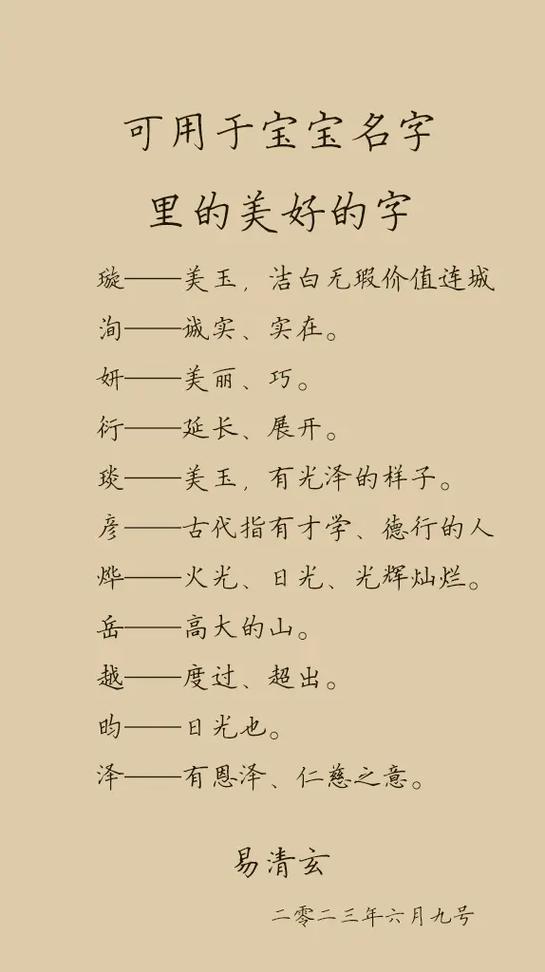 可用于宝宝名字
里的美好的字
璇——美玉，洁白无瑕价值连城
洵——诚实、实在。
妍——美丽、巧。
衍——延长、展开。
琰——美玉，有光泽的样子。
彦——古代指有才学、德行的人
烨——火光、日光、光辉灿烂。
岳——高大的山。
越——度过、超出。
昀——日光也。
泽——有恩泽、仁慈之意。
易清玄
二零二三年六月九号